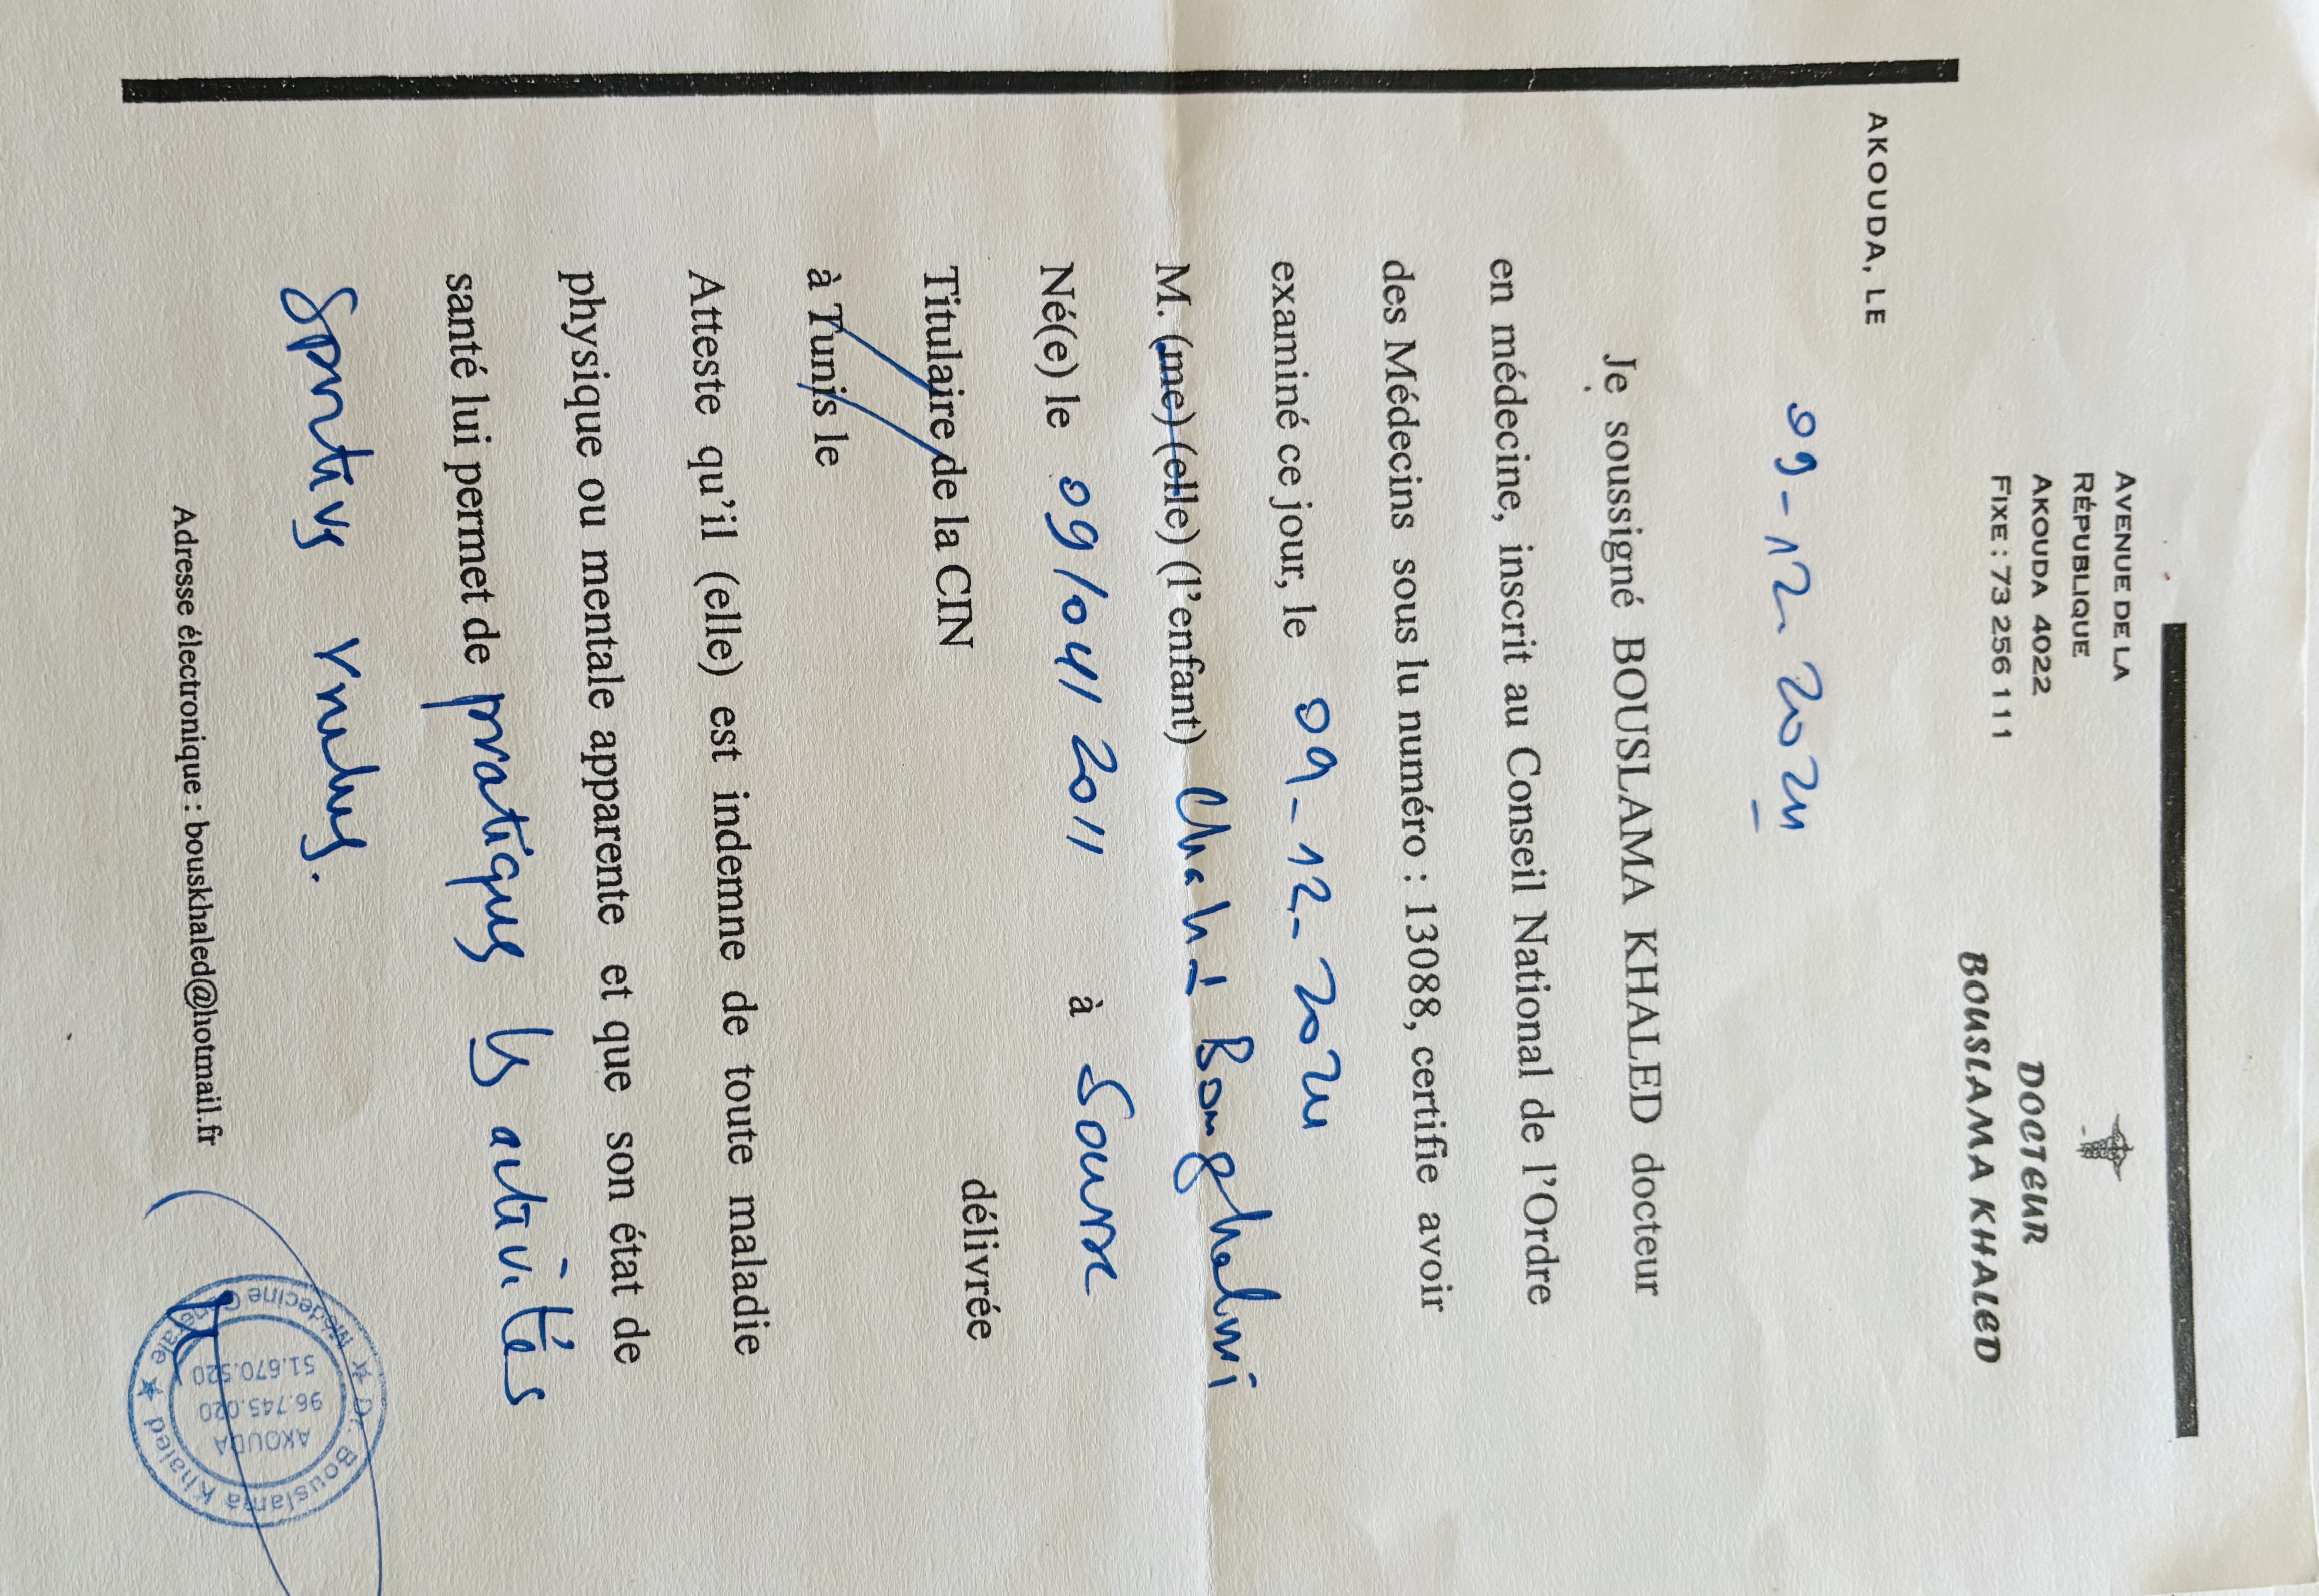 AVENUE DE LA
RÉPUBLIQUE
AKOUDA 4022
FIXE : 73 256 111
DOCTEUR
BOUSLAMA KHALED
AKOUDA, LE
09-12-2024
Je soussigné BOUSLAMA KHALED docteur
en médecine, inscrit au Conseil National de l'Ordre
des Médecins sous lu numéro : 13088, certifie avoir
examiné ce jour, le 09-12-2024
M. (me) (elle) (l'enfant)
Né(e) le 09/04/2011 à Sousse
Titulaire de la CIN délivrée
à Tunis le
Atteste qu'il (elle) est indemne de toute maladie
physique ou mentale apparente et que son état de
santé lui permet de pratiquer les activités
Sportives
Adresse électronique : bouskhaled@hotmail.fr
Dr. Bouslama Khaled
Médecine Générale
AKOUDA
96.745.020
51.670.520